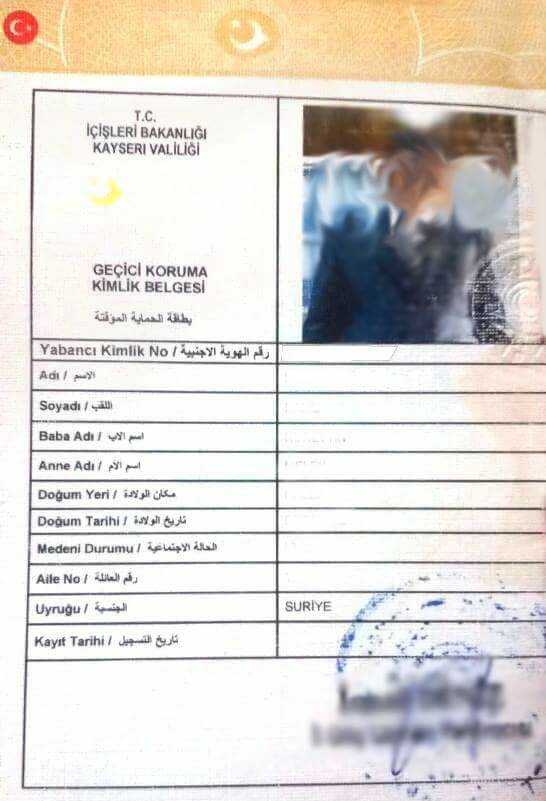 T.C.
İÇİŞLERİ BAKANLIĞI
KAYSERI VALİLİĞİ
GEÇİCİ KORUMA
KİMLİK BELGESİ
بطاقة الحماية المؤقتة
Yabancı Kimlik No / رقم الهوية الاجنبية
Adı / الاسم
Soyadı / اللقب
Baba Adı / اسم الاب
Anne Adı / اسم الام
Doğum Yeri / مكان الولادة
Doğum Tarihi / تاريخ الولادة
Medeni Durumu / الحالة الاجتماعية
Aile No / رقم العائلة
Uyruğu / الجنسية SURİYE
Kayıt Tarihi / تاريخ التسجيل